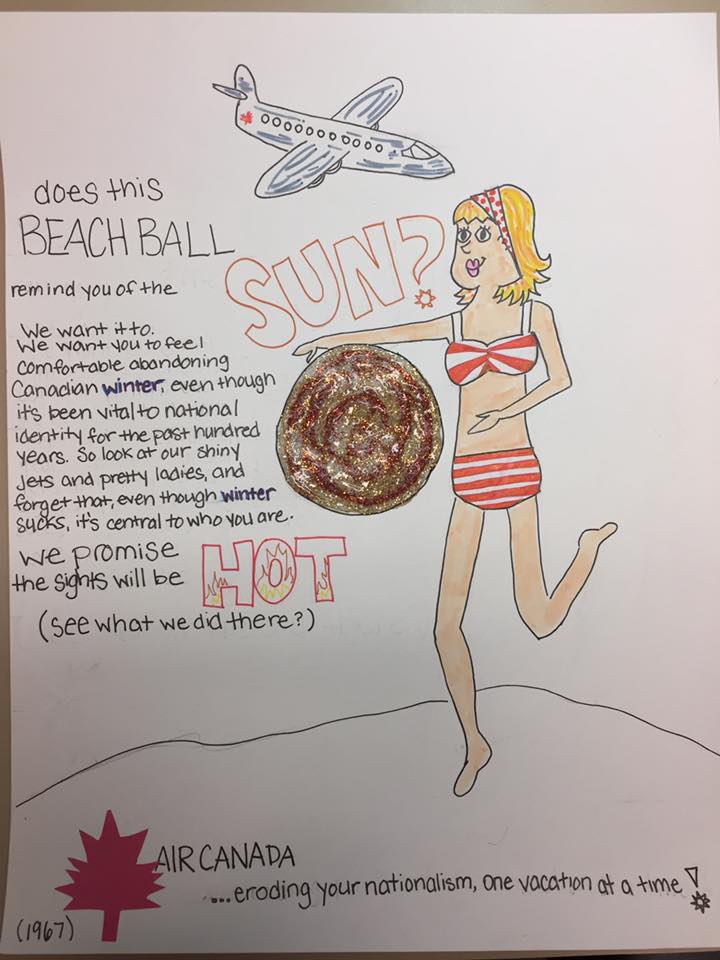 does this
BEACH BALL
remind you of the
SUN?
We want it to.
We want you to feel
comfortable abandoning
Canadian winter, even though
it's been vital to national
identity for the past hundred
years. So look at our shiny
jets and pretty ladies, and
forget that, even though winter
sucks, it's central to who you are.
we promise
the sights will be HOT
(see what we did there?)
AIR CANADA
...eroding your nationalism, one vacation at a time!
(1967)